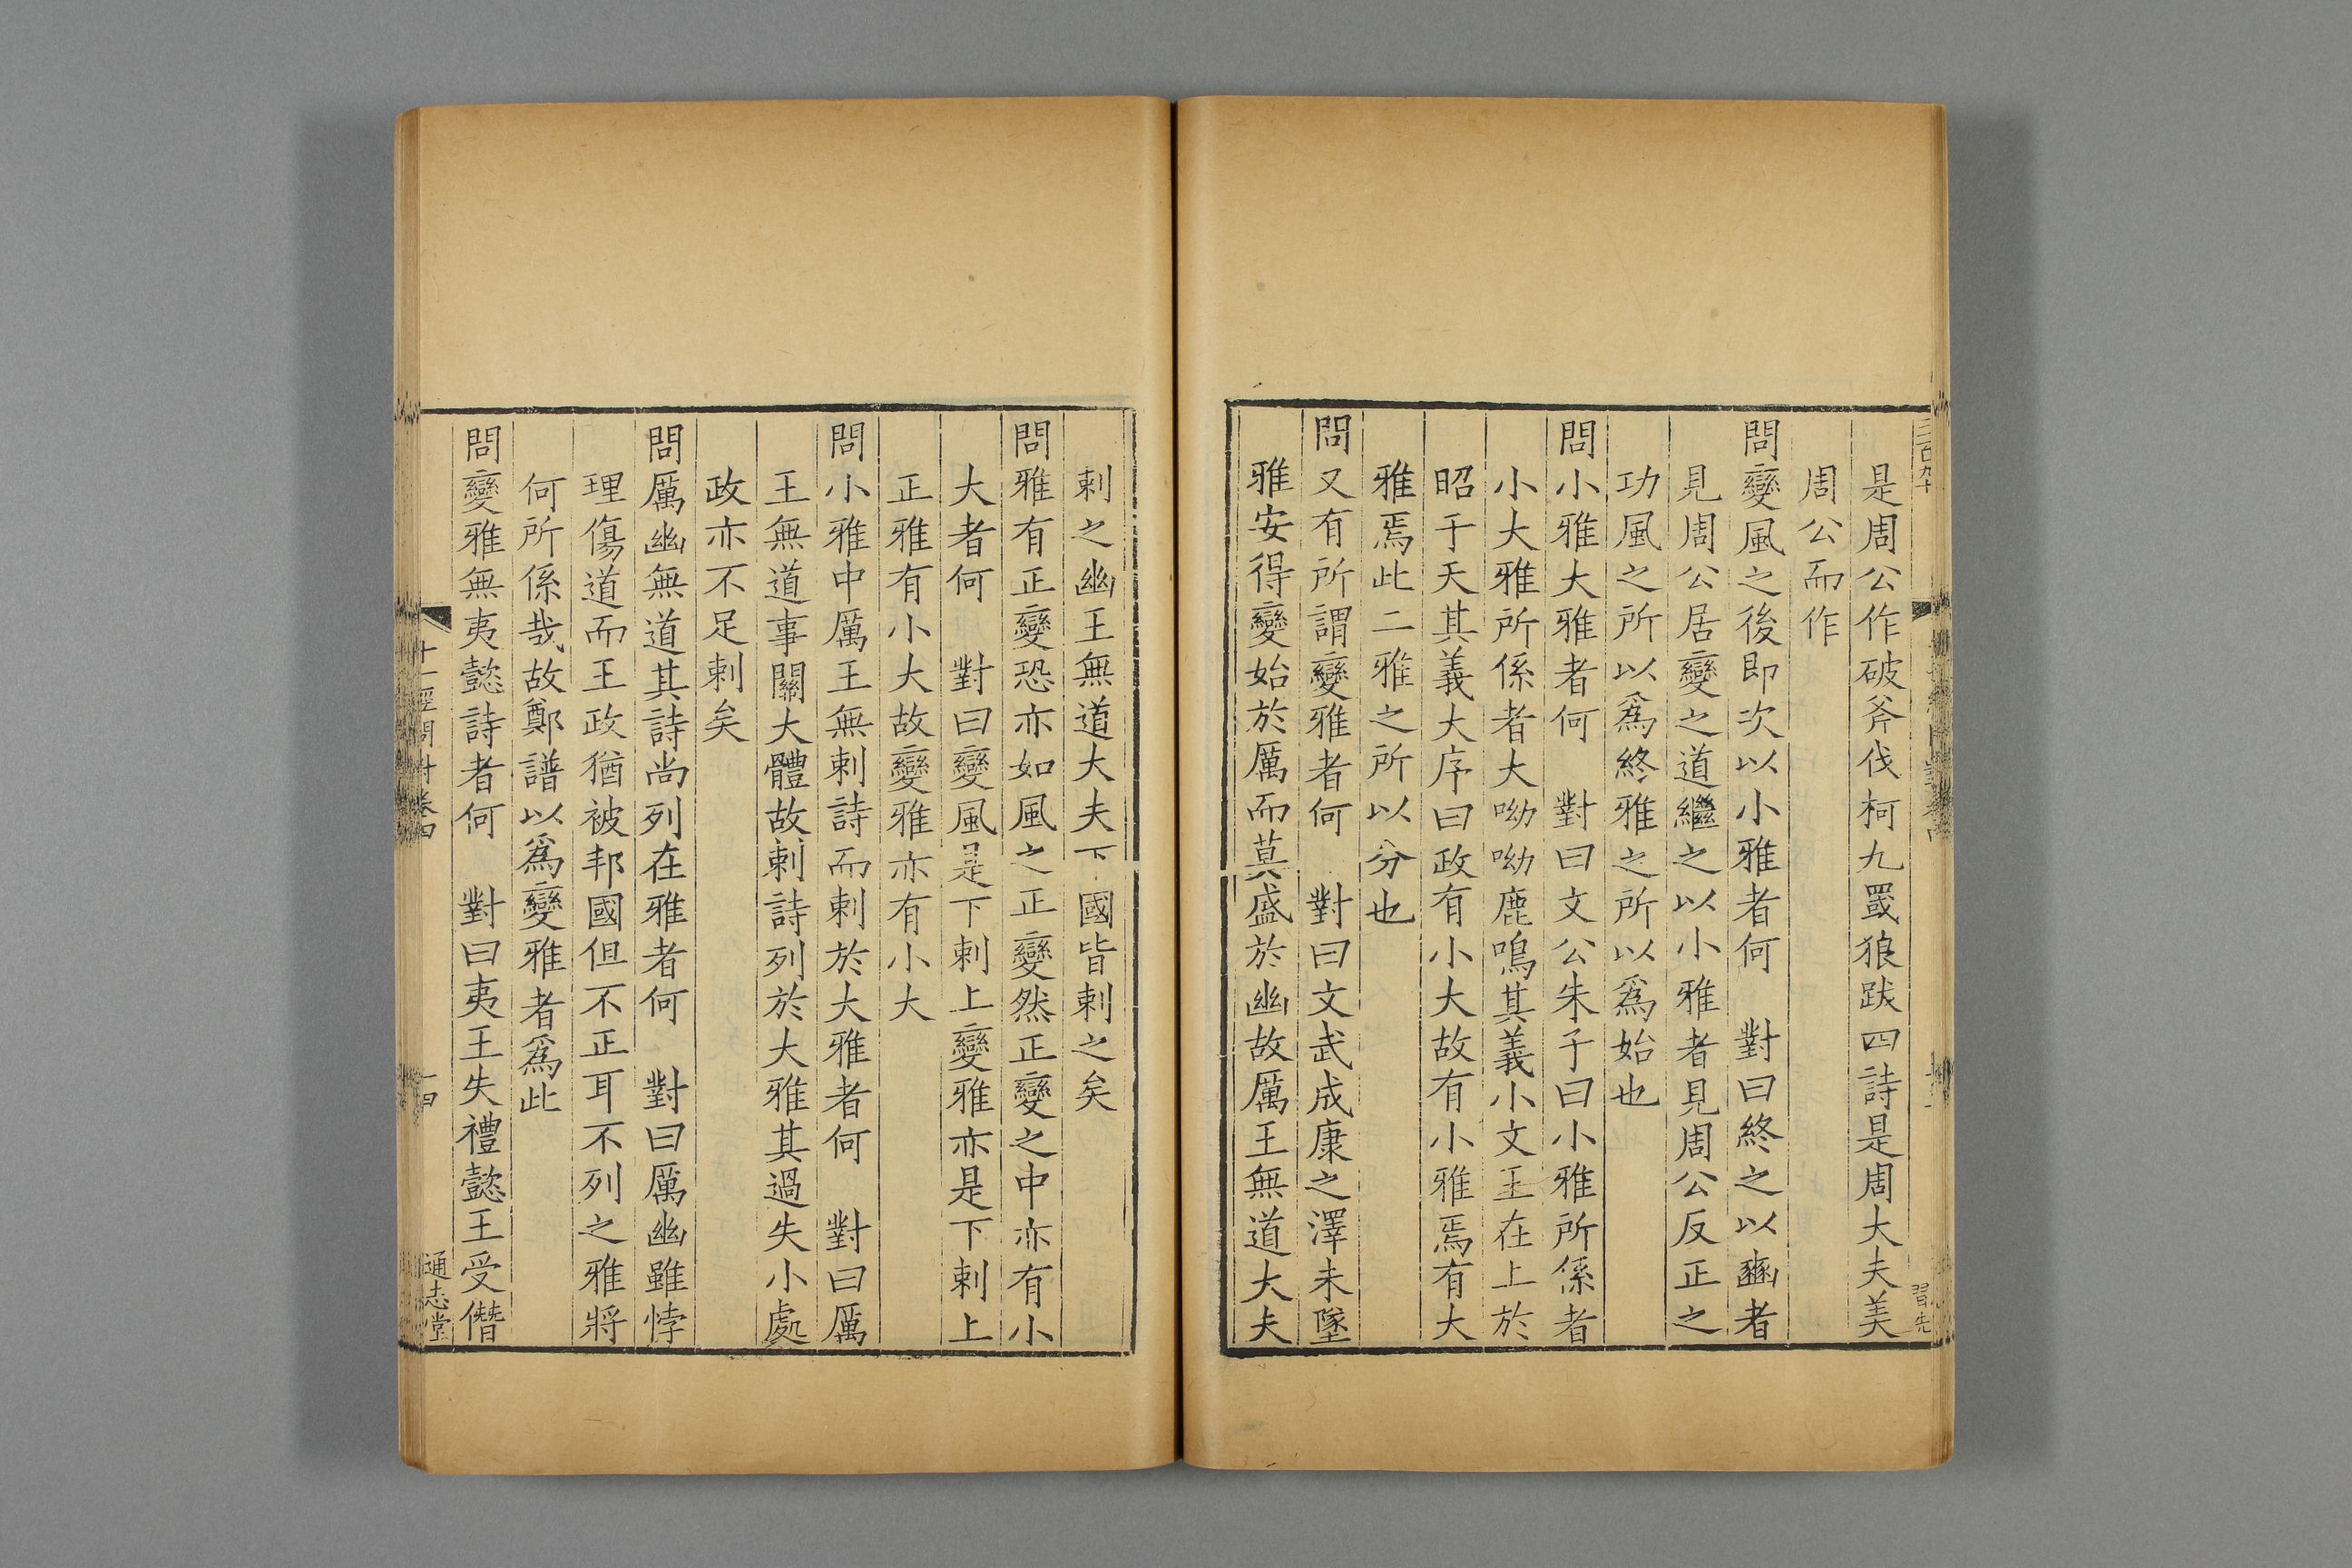 是周公作破斧伐柯九罭狼跋四詩是周大夫美
周公而作
問變風之後即次以小雅者何　對曰終之以豳者
見周公居變之道繼之以小雅者見周公反正之
功風之所以爲終雅之所以爲始也
問小雅大雅者何　對曰文公朱子曰小雅所係者
小大雅所係者大呦呦鹿鳴其義小文王在上於
昭于天其義大序曰政有小大故有小雅焉有大
雅焉此二雅之所以分也
問又有所謂變雅者何　對曰文武成康之澤未墜
雅安得變始於厲而莫盛於幽故厲王無道大夫
刺之幽王無道大夫下國皆刺之矣
問雅有正變恐亦如風之正變然正變之中亦有小
大者何　對曰變風是下刺上變雅亦是下刺上
正雅有小大故變雅亦有小大
問小雅中厲王無刺詩而刺於大雅者何　對曰厲
王無道事關大體故刺詩列於大雅其過失小處
政亦不足刺矣
問厲幽無道其詩尚列在雅者何　對曰厲幽雖悖
理傷道而王政猶被邦國但不正耳不列之雅將
何所係哉故鄭譜以爲變雅者爲此
問變雅無夷懿詩者何　對曰夷王失禮懿王受僭
十一經問對卷四
通志堂